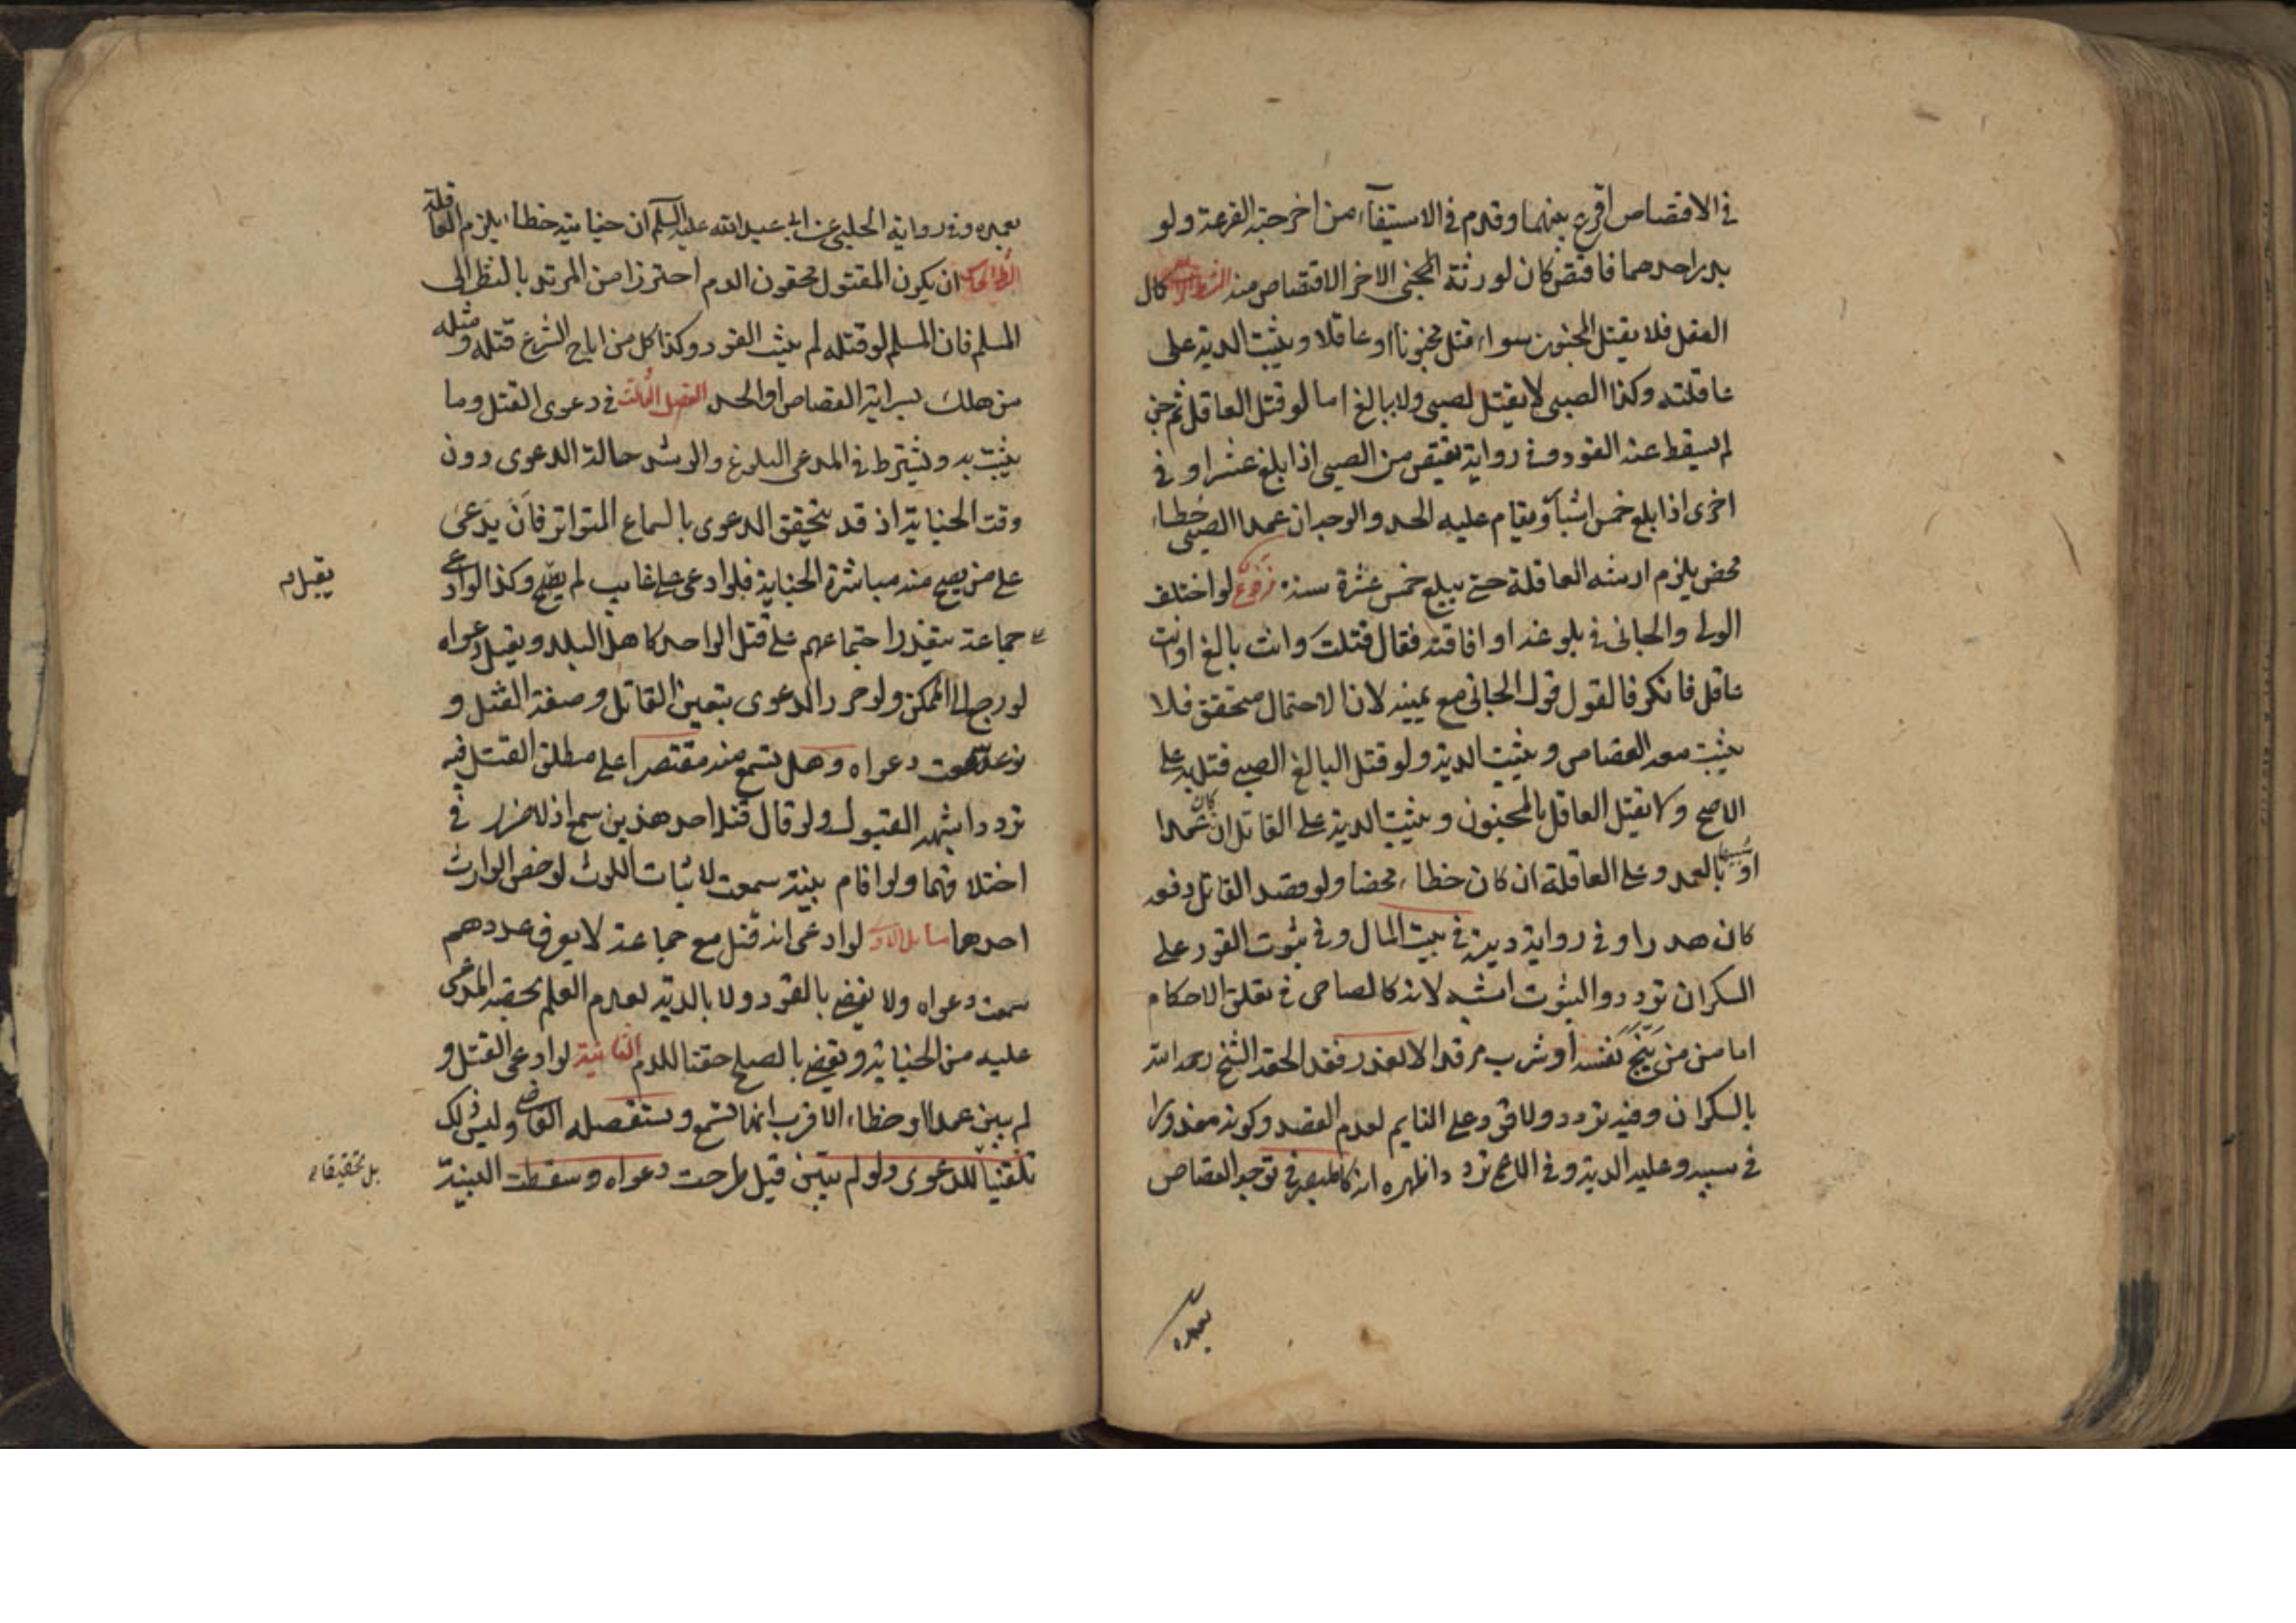 في الاقتصاص اقرع بينهما وقدم في الاستيفاء من اخرجته القرعة ولو
بدر احدهما فاقتص كان لورثة المجني الاخر الاقتصاص منه الشرط الرابع كمال
العقل فلا يقتل المجنون سواء قتل مجنونا او عاقلا ويثبت الدية على
عاقلته وكذا الصبي لا يقتل لصبي ولا بالغ اما لو قتل العاقل ثم جن
لم يسقط عنه القود وفي رواية يقتص من الصبي اذا بلغ عشرا وفي
اخرى اذا بلغ خمس اشبار ويقام عليه الحد والوجه ان عمد الصبي خطاء
محض يلزم ارشه العاقلة حتى يبلغ خمس عشرة سنة فروع لو اختلف
الولي والجاني في بلوغه او افاقته فقال قتلت وانت بالغ او انت
عاقل فانكر فالقول قول الجاني مع يمينه لان الاحتمال متحقق فلا
يثبت معه القصاص ويثبت الدية ولو قتل البالغ الصبي قتل به على
الاصح ولا يقتل العاقل بالمجنون ويثبت الدية على القاتل ان كان عمدا
او شبيها بالعمد وعلى العاقلة ان كان خطاء محضا ولو قصد القاتل دفعه
كان هدرا وفي رواية ديته في بيت المال وفي ثبوت القود على
السكران تردد والثبوت اشبه لانه كالصاحي في تعلق الاحكام
اما من من بنج نفسه او شرب مرقدا لا لعذر فقد الحقه الشيخ رحمه الله
بالسكران وفيه تردد ولا قود على النايم لعدم القصد وكونه معذورا
في سببه وعليه الدية وفي الاعمى تردد واظهره انه كالمبصر في توجه القصاص
بعمده
بعمده وفي رواية الحلبي عن ابي عبد الله عليه السلم ان جنايته خطاء يلزم العاقلة
الشرط الخامس ان يكون المقتول محقون الدم احترازا من المرتد بالنظر الى
المسلم فان المسلم لو قتله لم يثبت القود وكذا كل من اباح الشرع قتله ومثله
من هلك بسراية القصاص او الحد الفصل الثالث في دعوى القتل وما
يثبت به ويشترط في المدعي البلوغ والرشد حالة الدعوى دون
وقت الجناية اذ قد يتحقق الدعوى بالسماع المتواتر فان يدعى
على من يصح منه مباشرة الجناية فلو ادعى على غايب لم يصح وكذا لو ادعى
يقبل
على جماعة يتعذر اجتماعهم على قتل الواحد كاهل البلد ويقبل دعواه
لو رجع الى الممكن ولو حرر الدعوى بتعيين القاتل وصفة القتل و
نوعه سمعت دعواه وهل تسمع منه مقتصرا على مطلق القتل فيه
تردد اشبهه القبول ولو قال قتله احد هذين سمع اذ لا ضرر في
احلافهما ولو اقام بينة سمعت لاثبات اللوث لو خص الوارث
احدهما مسايل الاولى لو ادعى انه قتل مع جماعة لا يعرف عددهم
سمعت دعواه ولا يقضى بالقود ولا بالدية لعدم العلم بحصة المدعى
عليه من الجناية ويقضى بالصلح حقنا للدم الثانية لو ادعى القتل و
لم يبين عمدا او خطاء الاقرب انها تسمع ويستفصله القاضي وليس ذلك
تلقينا للدعوى ولو لم يبين قيل طرحت دعواه وسقطت البينة
بل تحقيقا